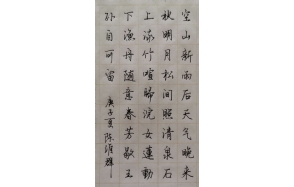 空山新雨后天气晚来
秋明月松间照清泉石
上流竹喧歸浣女蓮動
下渔舟随意春芳歇王
孙自可留 庚子夏陈